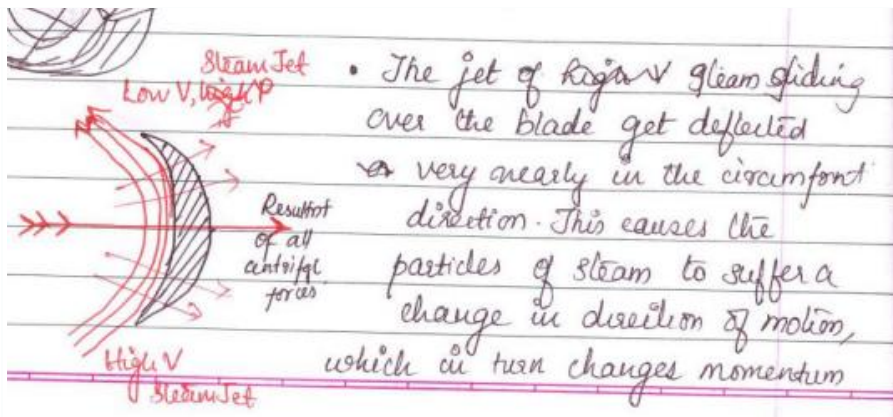 Steam Jet
Low V, high P
Resultnt
of all
centrifgl
forces.
High V
Steam Jet
• The jet of high V steam gliding
over the blade get deflected
very nearly in the circumfrnt
direction. This causes the
particles of steam to suffer a
change in direction of motion,
which in turn changes momentum